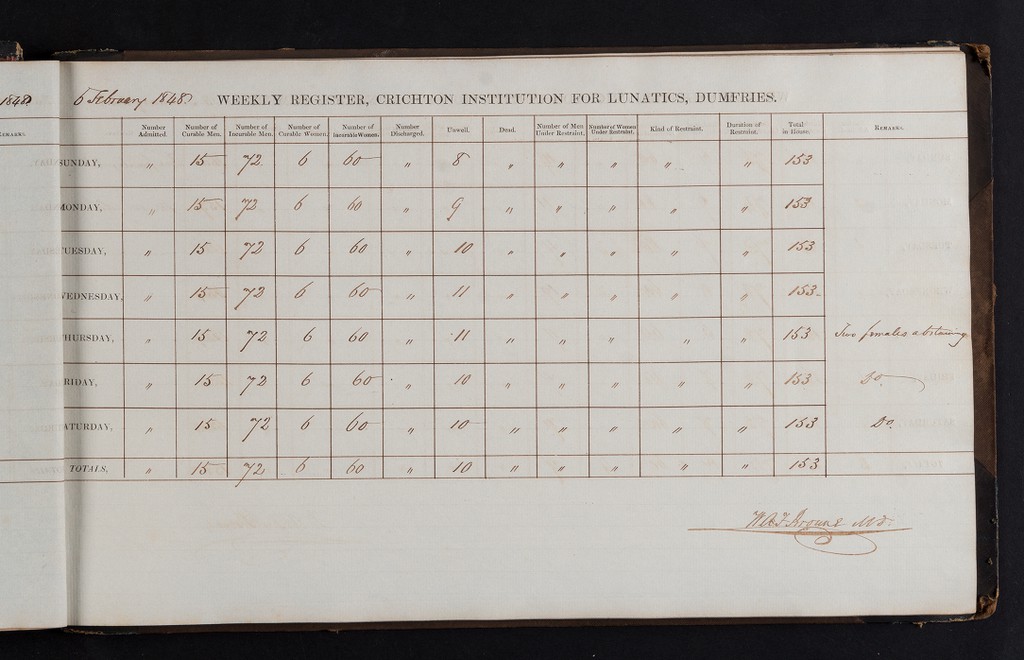 1848.
REMARKS.
6 February 1848. WEEKLY REGISTER, CRICHTON INSTITUTION FOR LUNATICS, DUMFRIES.
Number Admitted. Number of Curable Men. Number of Incurable Men. Number of Curable Women. Number of Incurable Women. Number Discharged. Unwell. Dead. Number of Men Under Restraint. Number of Women Under Restraint. Kind of Restraint. Duration of Restraint. Total in House. REMARKS.
SUNDAY, " 15 72 6 60 " 8 " " " " " 153
MONDAY, " 15 72 6 60 " 9 " " " " " 153
TUESDAY, " 15 72 6 60 " 10 " " " " " 153
WEDNESDAY, " 15 72 6 60 " 11 " " " " " 153
THURSDAY, " 15 72 6 60 " 11 " " " " " 153 Two females abstaining
FRIDAY, " 15 72 6 60 " 10 " " " " " 153 Do.
SATURDAY, " 15 72 6 60 " 10 " " " " " 153 Do.
TOTALS, " 15 72 6 60 " 10 " " " " " 153
W.A.F. Browne M.D.